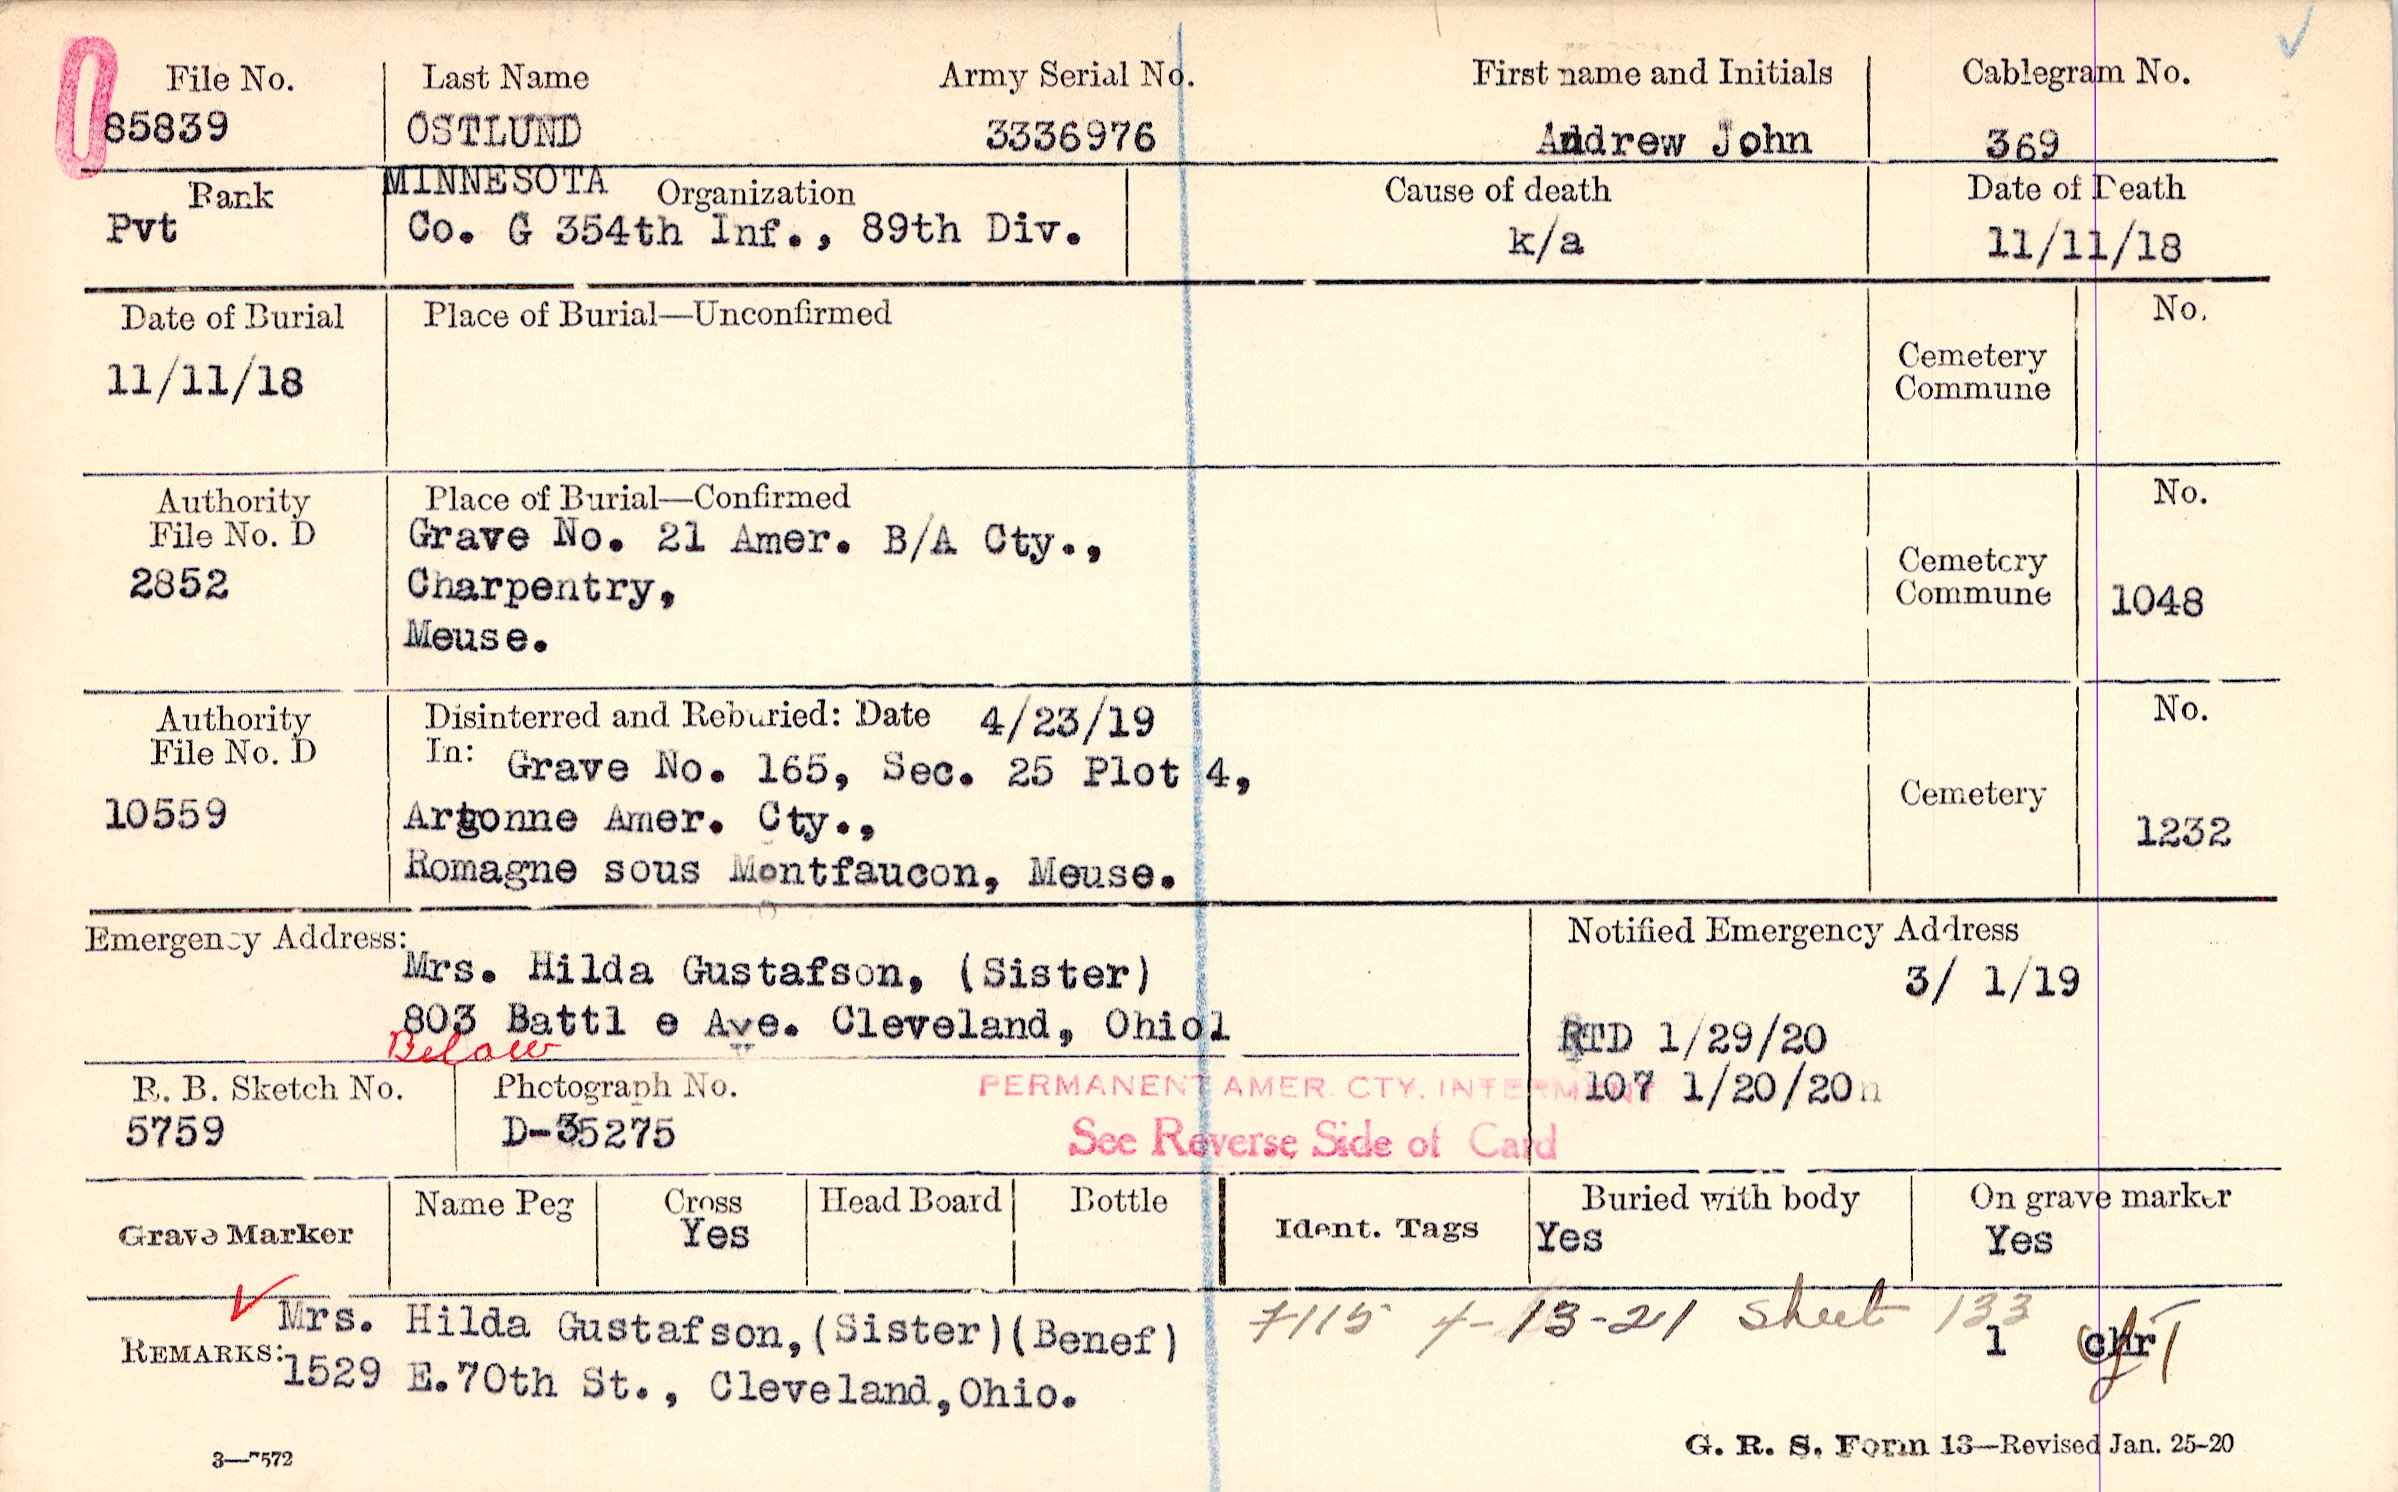 File No. Last Name Army Serial No. First name and Initials Cablegram No.
85839 OSTLUND 3336976 Andrew John 369
MINNESOTA
Rank Organization Cause of death Date of Death
Pvt Co. G 354th Inf., 89th Div. k/a 11/11/18
Date of Burial Place of Burial—Unconfirmed No.
11/11/18 Cemetery
Commune
Authority Place of Burial—Confirmed No.
File No. D Grave No. 21 Amer. B/A Cty.,
2852 Charpentry, Cemetery
Commune 1048
Meuse.
Authority Disinterred and Reburied: Date 4/23/19 No.
File No. D In: Grave No. 165, Sec. 25 Plot 4,
10559 Argonne Amer. Cty., Cemetery 1232
Romagne sous Montfaucon, Meuse.
Emergency Address: Notified Emergency Address
Mrs. Hilda Gustafson, (Sister) 3/ 1/19
803 Battl e Ave. Cleveland, Ohio1 RTD 1/29/20
Below
R. B. Sketch No. Photograph No. PERMANENT AMER. CTY. INTERMENT 107 1/20/20n
5759 D-35275 See Reverse Side of Card
Grave Marker Name Peg Cross Head Board Bottle Ident. Tags Buried with body On grave marker
Yes Yes Yes
Mrs. Hilda Gustafson,(Sister)(Benef) 7115 4-13-21 Sheet 133
REMARKS: 1529 E.70th St., Cleveland,Ohio. 1 chr
3—7572 G. R. S. Form 13—Revised Jan. 25-20